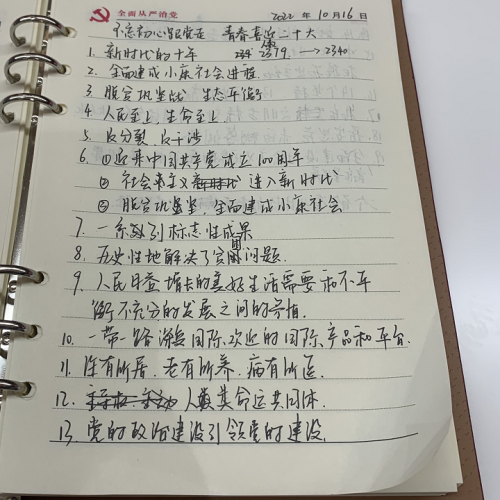 全面从严治党
2022 年 10月16日
不忘初心跟党走 青春喜迎二十大
1. 新时代的十年 2379 → 2340
2. 全面建成小康社会进程
3. 脱贫攻坚战 生态平衡
4. 人民至上 生命至上
5. 反分裂 反干涉
6. ①迎来中国共产党成立100周年
② 社会主义 进入新时代
③ 脱贫攻坚, 全面建成小康社会
7. 一系列标志性成果
8. 历史性地解决了贫困问题.
9. 人民日益增长的美好生活需要和不平
衡不充分的发展之间的矛盾
10. 一带一路 深受国际欢迎的国际产品和平台.
11. 住有所居. 老有所养. 病有所医.
12. 人类命运共同体.
13. 党的政治建设引领党的建设.